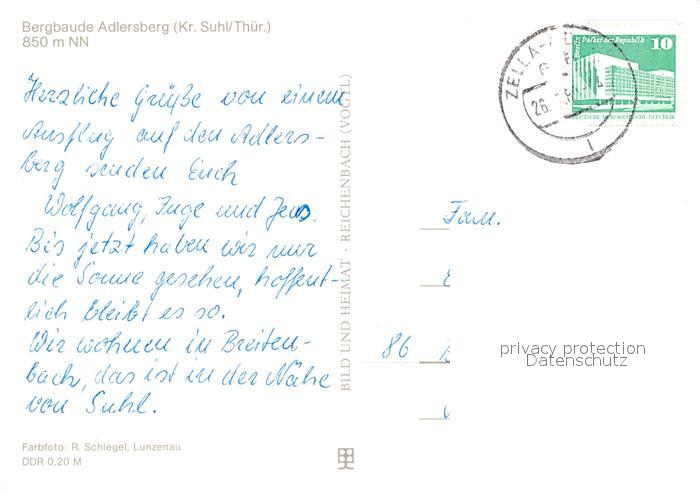 Bergbaude Adlersberg (Kr. Suhl/Thür.)
850 m NN
Herzliche Grüße von einem
Ausflug auf den Adlers-
berg senden Euch
Wolfgang, Inge und Jens.
Bis jetzt haben wir nur
die Sonne gesehen, hoffent-
lich bleibt es so.
Wir wohnen in Breiten-
bach, das ist in der Nähe
von Suhl.
Farbfoto: R. Schlegel, Lunzenau
DDR 0,20 M
BILD UND HEIMAT · REICHENBACH (VOGTL)
ZELLA-
26.
Berlin Palast der Republik 10
DEUTSCHE DEMOKRATISCHE REPUBLIK
Fam.
86
privacy protection
Datenschutz